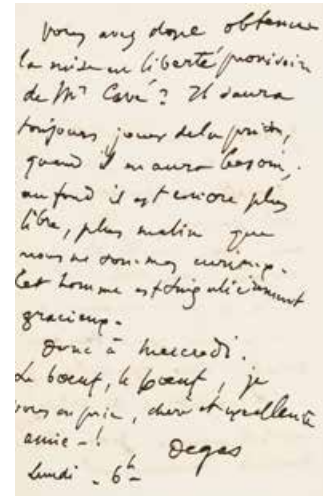 vous avez donc obtenu
la mise en liberté provisoire
de Mr Cavé? Il saura
toujours jouer de la prison,
quand il en aura besoin,
au fond il est encore plus
libre, plus malin que
nous ne sommes curieux.
Cet homme est singulièrement
gracieux.
Donc à mercredi.
Le bœuf, le bœuf, je
vous en prie, chère et excellente
amie -!
Degas
Lundi - 6h